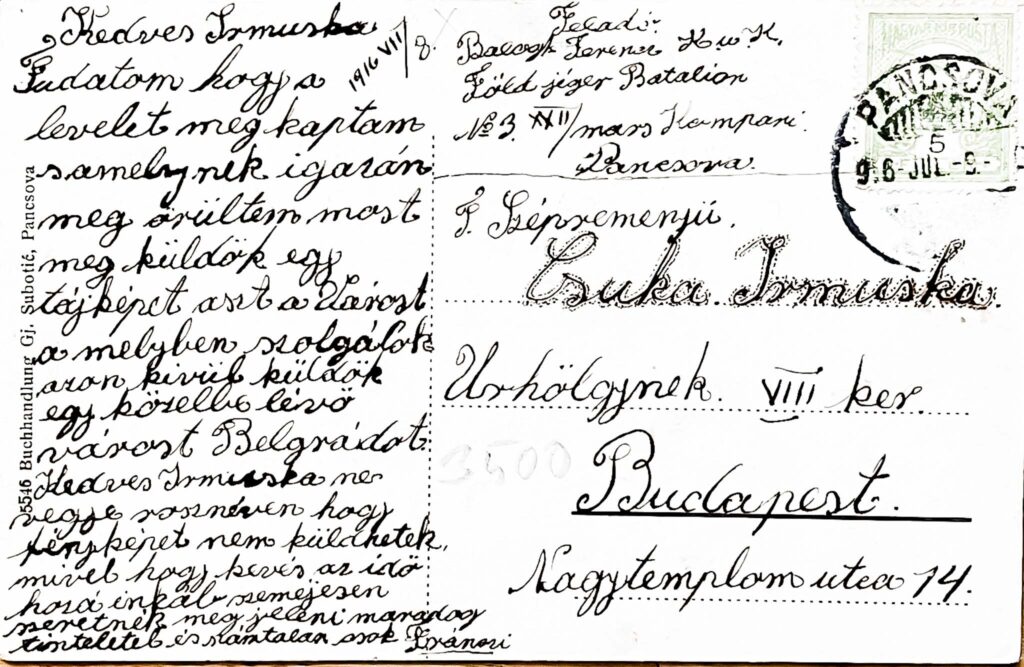 Kedves Irmuska
1916 VII/8.
Tudatom hogy a
levelet meg kaptam
samelynek igazán
meg örültem most
meg küldök egy
tájképet aszt a Várost
a melyben szolgálok
azon kivül küldök
egy közelbe lévő
várost Belgrádot.
Kedves Irmuska ne
vegye rosznéven hogy
fényképet nem küldhetek,
mivel hogy kevés az idő
hozá inkáb személyesen
szeretnék meg jeleni maradog
tisztelétel és számtalan csok
5546 Buchhandlung Gj. Subotić, Pancsova
Feladó:
Balogh Ferenc K.u.K.
Föld jéger Batalion
No 3. XXII/mars Kompani.
Pancsova.
T. Szépreményü.
Csuka. Irmuska.
Urhölgynek. VIII ker.
Budapest.
Nagytemplom utca 14.
3500
MAGYAR KIR. POSTA
PANCSOVA
5
916-JUL.-9.-